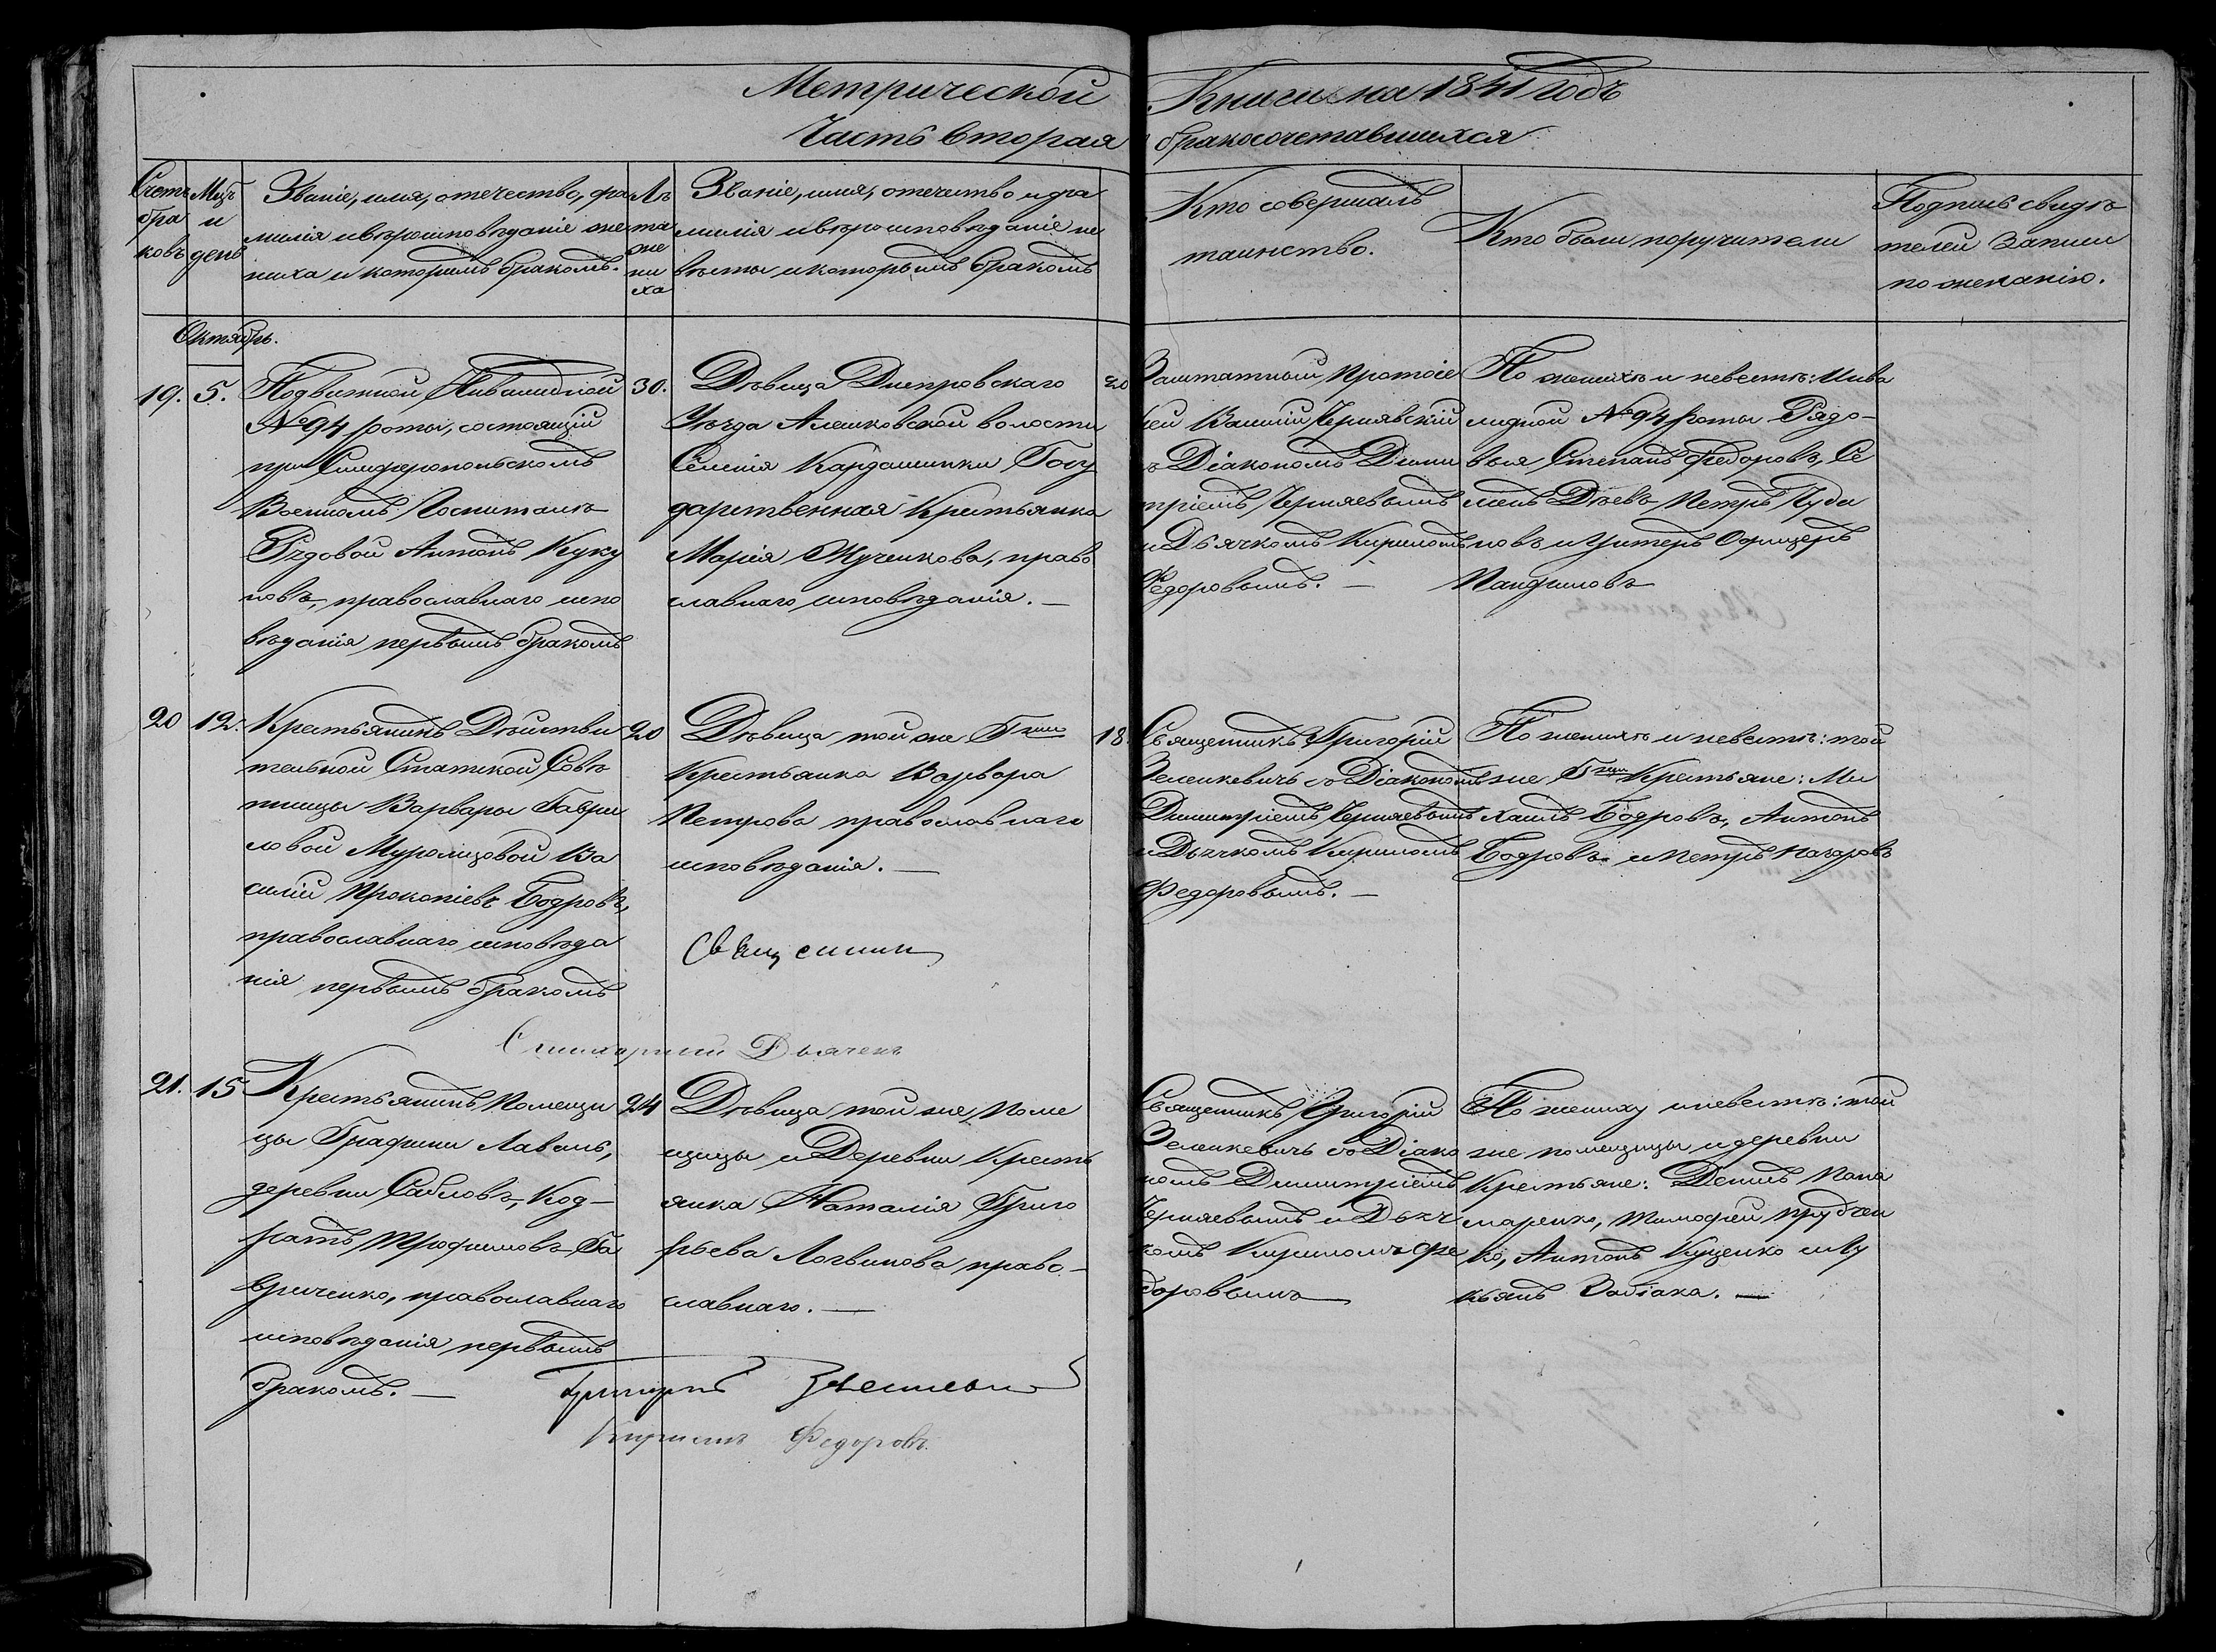 Метрической Книги на 1841 годъ
Часть вторая о бракосочетавшихся
Счетъ браковъ
Мцъ и день
Званіе, имя, отечество, фа
милія и вѣроисповѣданіе же
ниха и которымъ бракомъ.
Лѣ
та
же
ни
ха
Званіе, имя, отечество и фа
милія и вѣроисповѣданіе не
вѣсты и которымъ бракомъ
Кто совершалъ
таинство.
Кто были поручители
Подпись свидѣ
телей записи
по желанію.
Октябрь.
19. 5.
Подвижной Инвалидной
№ 94 роты, состоящій
при Симферопольскомъ
Военномъ Госпиталѣ
Рядовой Антонъ Куку
новъ, православнаго испо
вѣданія первымъ бракомъ
30.
Дѣвица Днепровскаго
Уѣзда Алешковской волости
Селенія Кардашинки Госу
дарственная Крестьянка
Марія Жученкова, право
славнаго исповѣданія. —
20
Заштатный Протоіе
рей Василій Чернявскій
съ Діакономъ Дими
тріемъ Черняевымъ
и Дьячкомъ Кириломъ
Федоровымъ. —
По женихѣ и невестѣ: Инва
лидной № 94 роты Рядо-
выя Степанъ Федоровъ, Се
менъ Дѣевъ Петръ Чуди
новъ и Унтеръ Офицеръ
Панфиловъ
20 12.
Крестьянинъ Дѣйстви
тельной Статской Совѣ
тницы Варвары Гаври
ловой Муромцовой Ва
силій Прокопіевъ Бодровъ,
православнаго исповѣда
нія первымъ бракомъ
20
Дѣвица той же Гжи
Крестьянка Варвара
Петрова православнаго
исповѣданія. —
18.
Священникъ Григорій
Зеленкевичъ съ Діакономъ
Димитріемъ Черняевымъ
и Дьячкомъ Кириломъ
Федоровымъ. —
По женихѣ и невестѣ: той
же Гжи Крестьяне: Ми
хаилъ Бодровъ, Антонъ
Бодровъ и Петръ Назаровъ
Священникъ
Стихарный Дьячекъ
21. 15
Крестьянинъ Помещи
цы Графини Лаваль,
деревни Сабловъ, Код-
ратъ Трофимовъ Га
вриченко, православнаго
исповѣданія первымъ
бракомъ. —
24
Дѣвица той же Поме
щицы и Деревни Кресть
янка Наталія Григо
рьева Логвинова право-
славнаго. —
Священникъ Григорій
Зеленкевичъ съ Діако
номъ Димитріемъ
Черняевымъ и Дьяч
комъ Кириломъ Фе
доровымъ —
По жениху и невестѣ: той
же помещицы и деревни
Крестьяне: Денисъ Пона
маренко, Тимофей Прудчен
ко, Антонъ Куценко и Лу
кьянъ Забіака. —
Григорій Зеленкевичъ
Кирилъ Федоровъ.